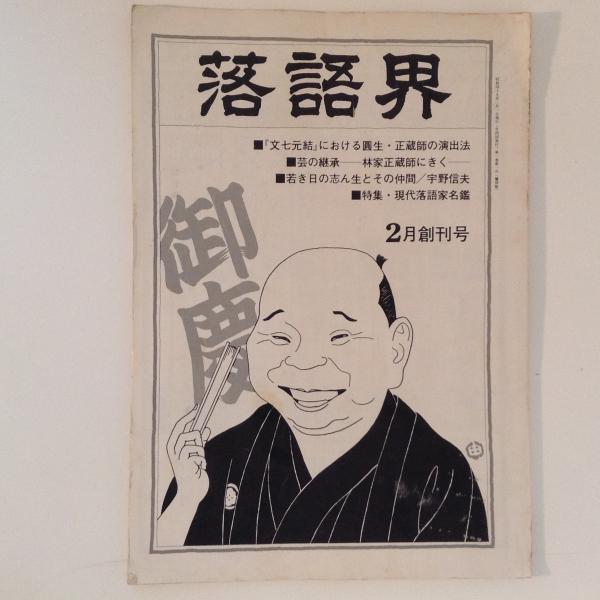 落語界
■『文七元結』における圓生・正蔵師の演出法
■芸の継承──林家正蔵師にきく──
■若き日の志ん生とその仲間/宇野信夫
■特集・現代落語家名鑑
2月創刊号
御慶